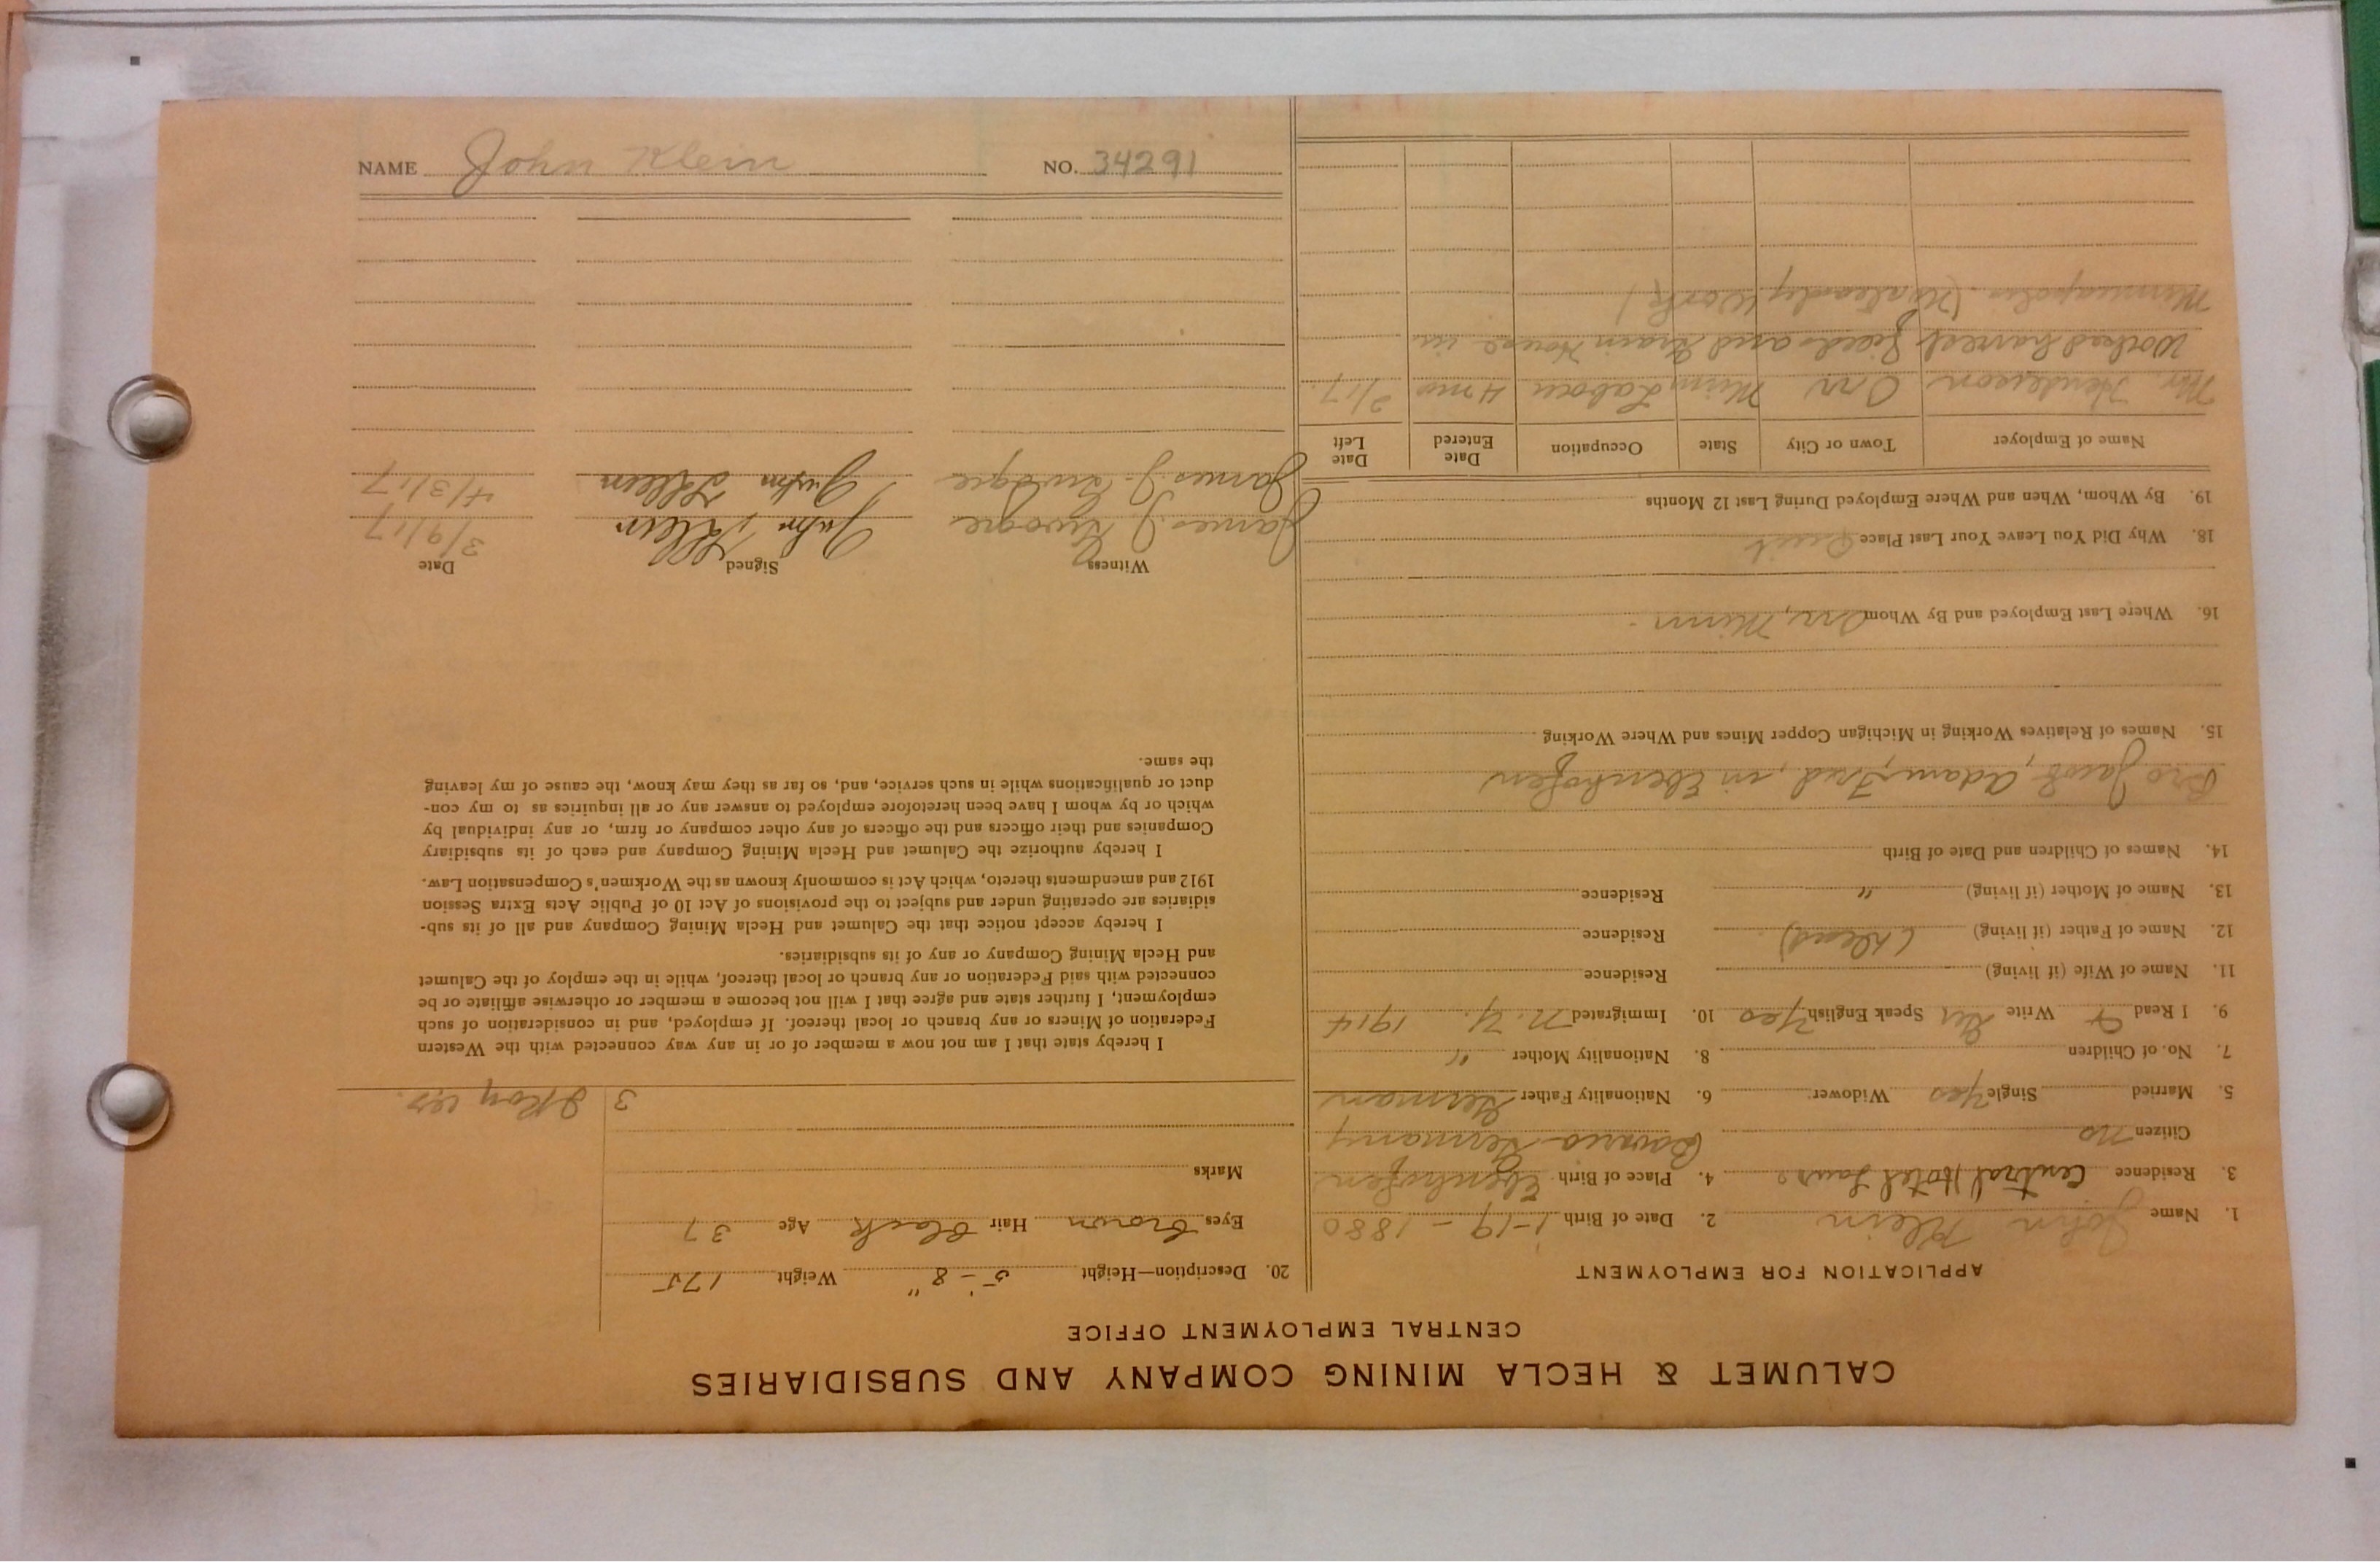 CALUMET & HECLA MINING COMPANY AND SUBSIDIARIES
CENTRAL EMPLOYMENT OFFICE
APPLICATION FOR EMPLOYMENT
1. Name John Klein 2. Date of Birth 1-19-1880
3. Residence Central Hotel 4. Place of Birth Ebenhofen
Citizen no Bavaria Germany
5. Married Single Yes Widower 6. Nationality Father German
7. No. of Children 8. Nationality Mother "
9. I Read Write Ger Speak English Yes 10. Immigrated N.Y. 1914
11. Name of Wife (if living) Residence
12. Name of Father (if living) (Dead) Residence
13. Name of Mother (if living) " Residence
14. Names of Children and Date of Birth
Bro Jacob, Adam, Fred, in Ebenhofen
15. Names of Relatives Working in Michigan Copper Mines and Where Working
16. Where Last Employed and By Whom Orr, Minn.
18. Why Did You Leave Your Last Place Quit
19. By Whom, When and Where Employed During Last 12 Months
Name of Employer Town or City State Occupation Date Entered Date Left
Mr. Henderson Orr Minn Labor 4 mo 2/17.
Worked harvest fields and Grain House in
Minneapolis. (Unsteady Work)
20. Description—Height 5'-8" Weight 175
Eyes brown Hair Black Age 37
Marks
3
I hereby state that I am not now a member of or in any way connected with the Western
Federation of Miners or any branch or local thereof. If employed, and in consideration of such
employment, I further state and agree that I will not become a member or otherwise affiliate or be
connected with said Federation or any branch or local thereof, while in the employ of the Calumet
and Hecla Mining Company or any of its subsidiaries.
I hereby accept notice that the Calumet and Hecla Mining Company and all of its sub-
sidiaries are operating under and subject to the provisions of Act 10 of Public Acts Extra Session
1912 and amendments thereto, which Act is commonly known as the Workmen's Compensation Law.
I hereby authorize the Calumet and Hecla Mining Company and each of its subsidiary
Companies and their officers and the officers of any other company or firm, or any individual by
which or by whom I have been heretofore employed to answer any or all inquiries as to my con-
duct or qualifications while in such service, and, so far as they may know, the cause of my leaving
the same.
Witness Signed Date
James J. John Klein 3/9/17
James J. John Klein 4/3/17
NAME John Klein NO. 34291